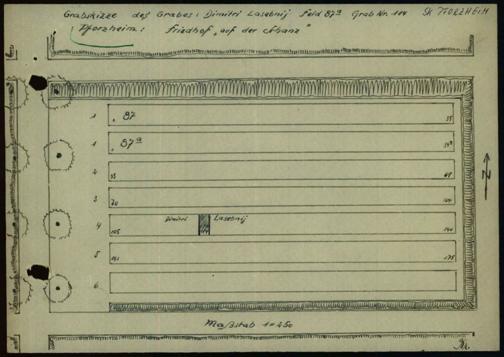 Grabskizze des Grabes: Dimitri Lasebnij Feld 87a Grab Nr. 114 SK PFORZHEIM
Pforzheim: Friedhof „auf der Schanz"
1 87
1 87a
2
3 70
4 105 Dimitri Lasebnij 140
5 141 175
6
N
Maßstab 1:250